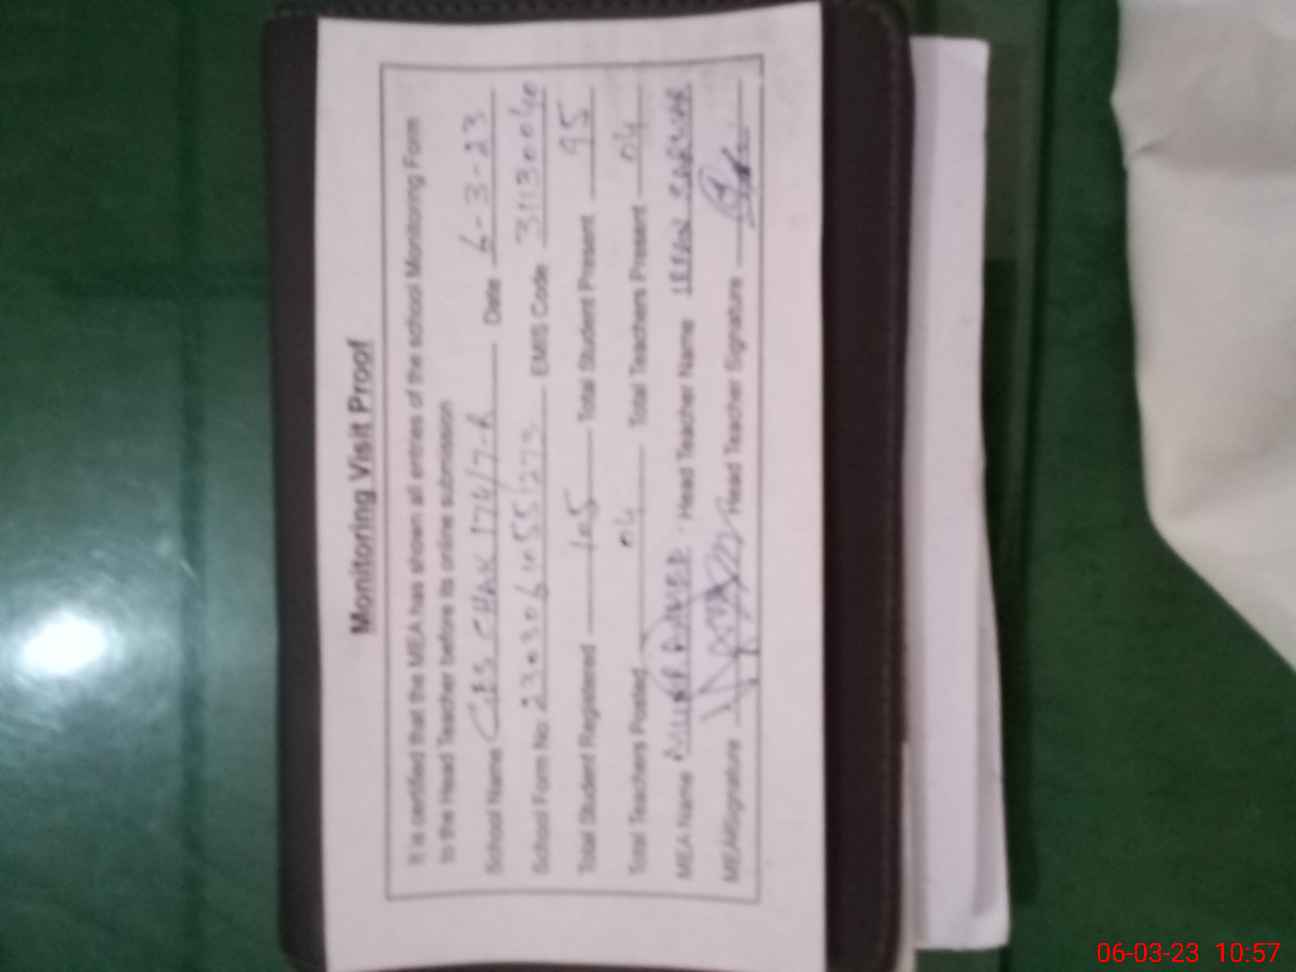 Monitoring Visit Proof
It is certified that the MEA has shown all entries of the school Monitoring Form
to the Head Teacher before its online submission
School Name GES CHAK 174/7-R Date 6-3-23
School Form No. EMIS Code 31130040
Total Student Registered 105 Total Student Present 95
Total Teachers Posted 04 Total Teachers Present 04
MEA Name AHMED Head Teacher Name SARWAR
MEA Signature Head Teacher Signature
06-03-23 10:57